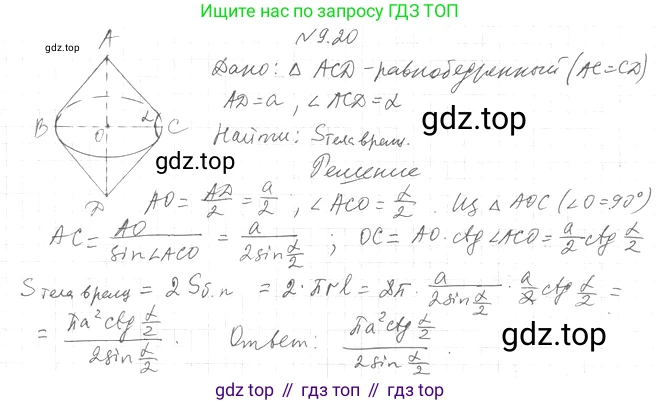 Ищите нас по запросу ГДЗ ТОП
N 9.20
gdz.top
A
Дано: △ ACD - равнобедренный (AC=CD)
AD = a, ∠ ACD = α
gdz.top
B O α C
Найти: Sтела вращ.
gdz.top
Решение
D
AO = AD/2 = a/2, ∠ ACO = α/2. Из △ AOC (∠O = 90°)
AC = AO/sin∠ACO = a/(2sin α/2); OC = AO · ctg ∠ACO = a/2 ctg α/2
Sтела вращ = 2 Sб.п = 2 · πrl = 2π · a/(2sin α/2) · a/2 ctg α/2 =
= πa² ctg α/2 / (2sin α/2). Ответ: πa² ctg α/2 / (2sin α/2).
gdz.top
gdz.top // гдз топ // gdz.top